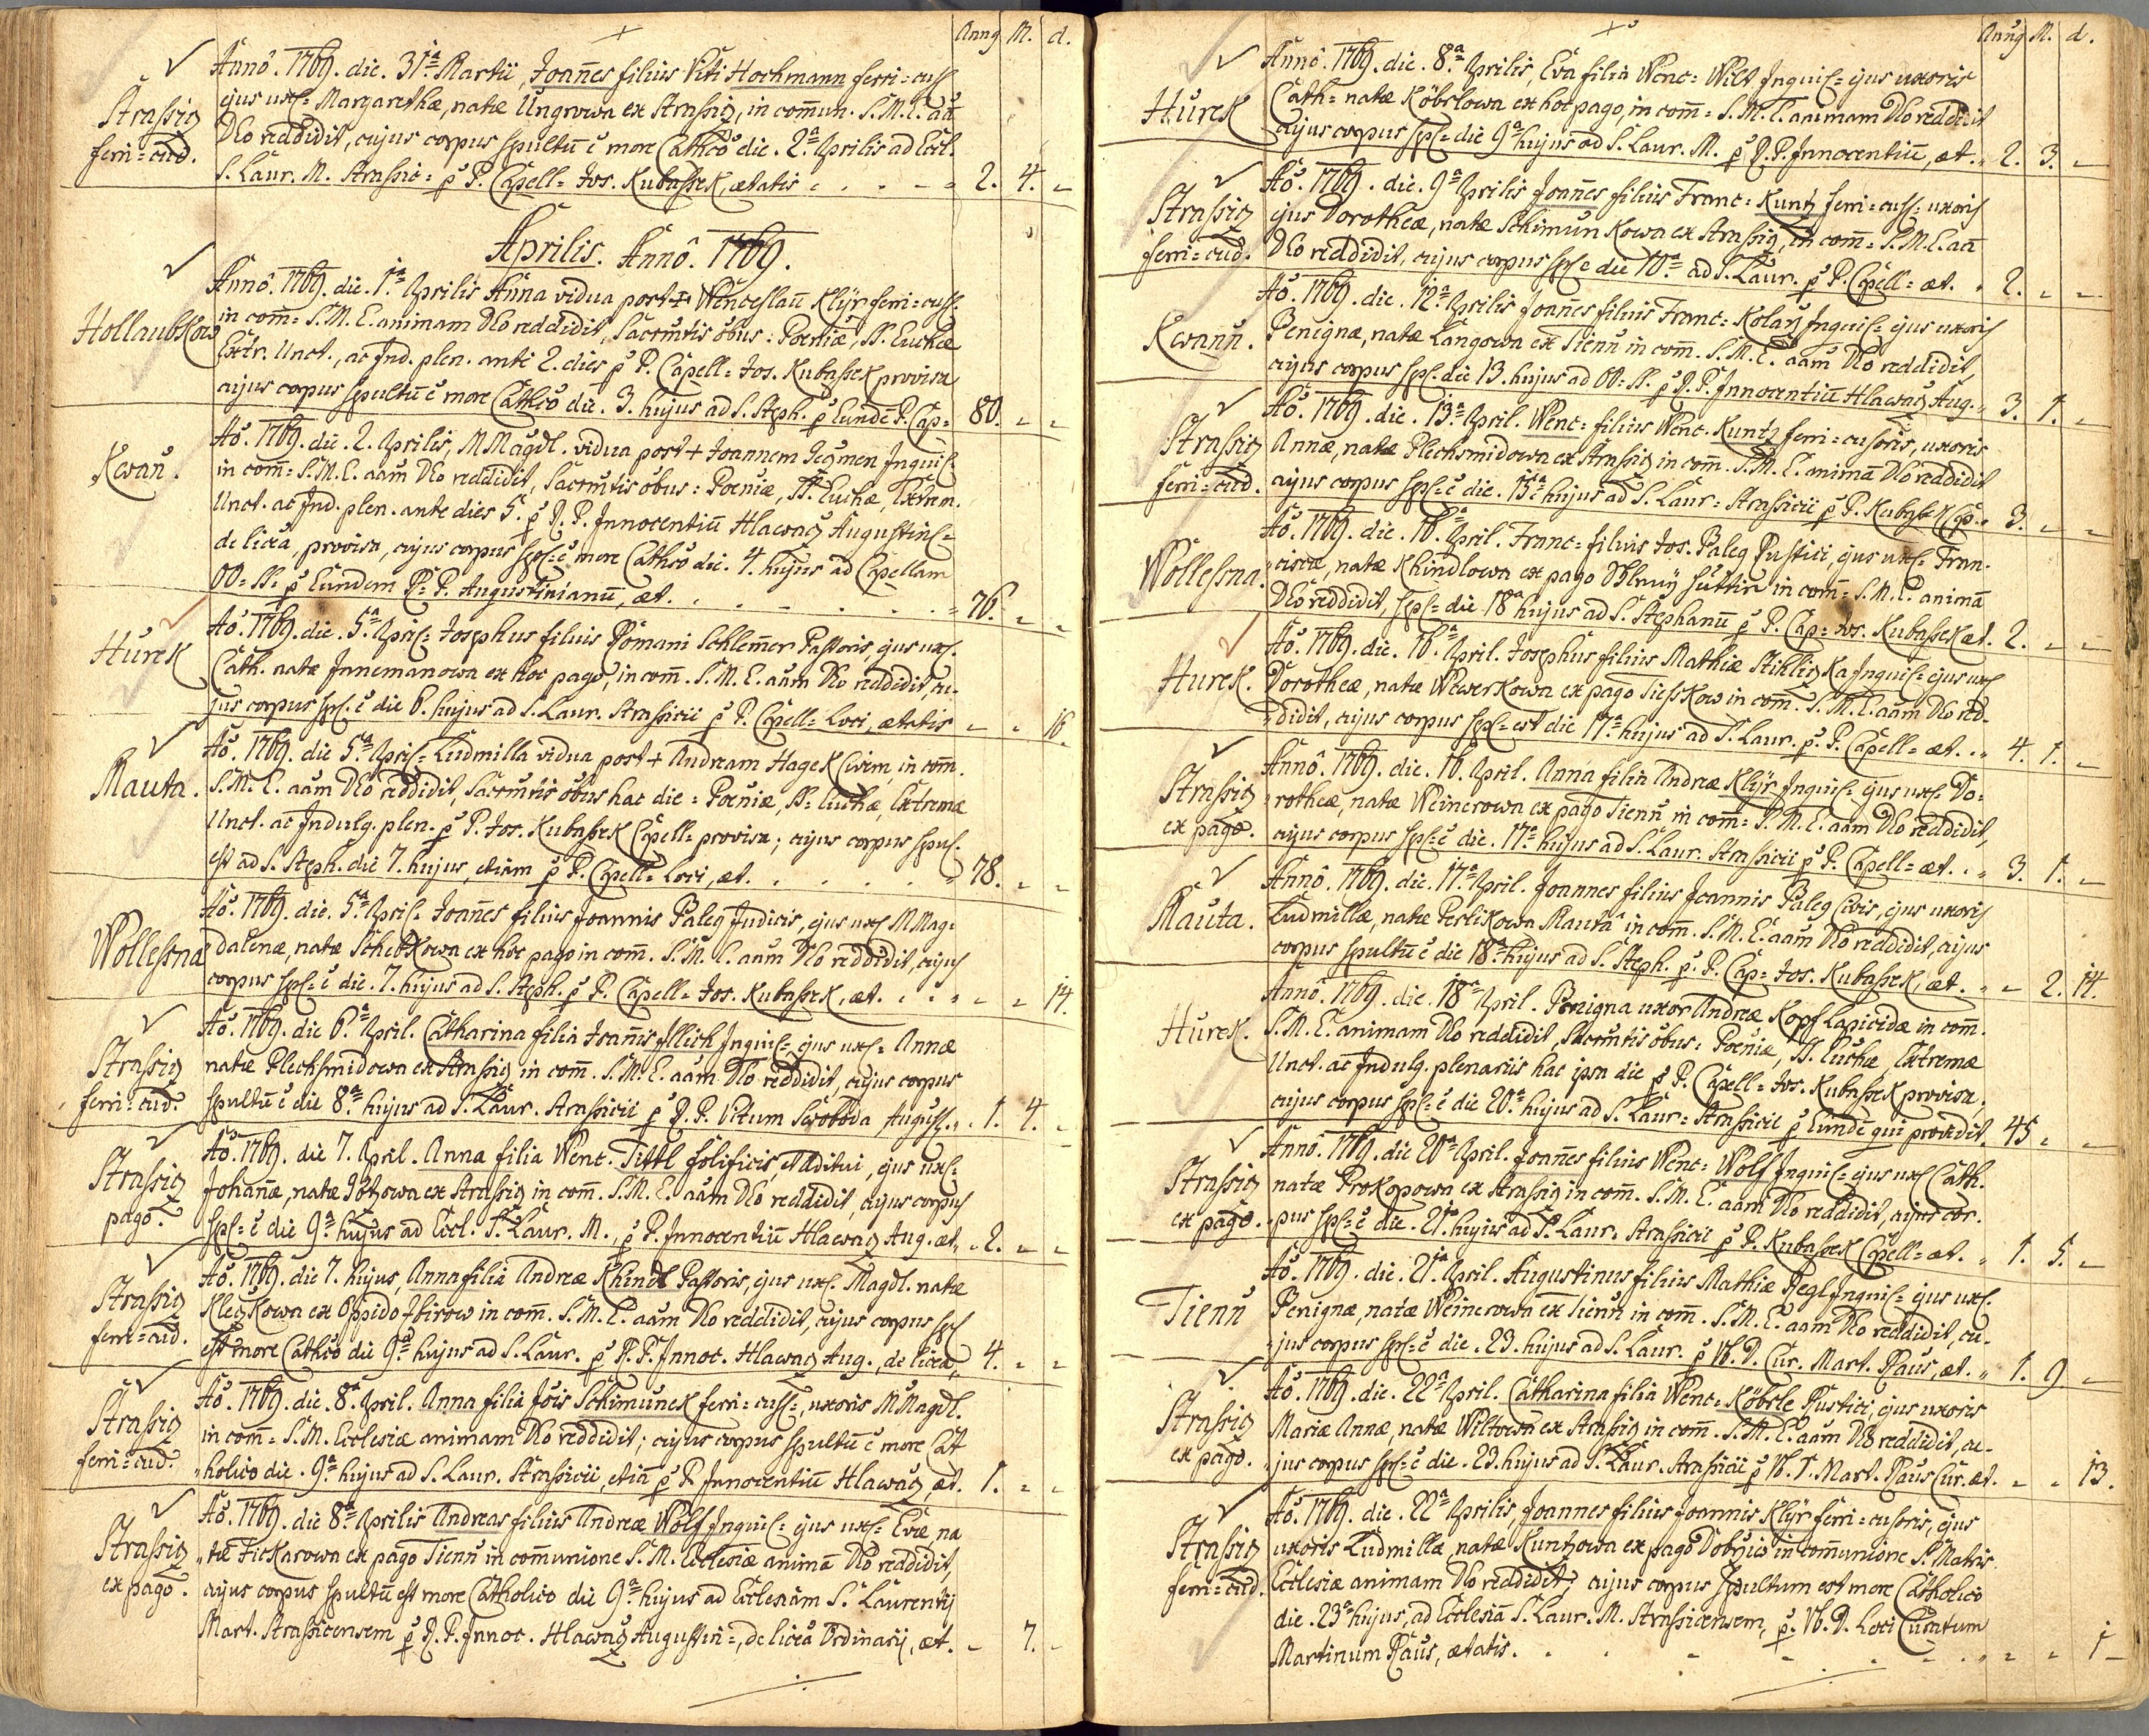 Annꝯ M. d.
Strassiz
ferri=cud.
Annô. 1769. die. 31a Martii, Joannes filius Viti Hochmann ferri=cus
ejus ux= Margarethæ, natæ Ungrowa ex Strassiz, in commun. S.M.E. aã
Deo reddidit, cujus corpus spultũ ẽ more Cathco die. 2a Aprilis ad Eccl.
S. Laur. M. Strassic= p P. Capell= Jos. Kubassek, ætatis 2. 4. -
Aprilis. Annô. 1769.
Hollaubkow
Annô. 1769. die. 1a Aprilis Anna vidua post + Wenceslaũ Klÿr ferri=cus=
in com̃= S.M.E. animam Deo reddidit, Sacrmtis õbus: Poeniæ, SS. Euchæ
Extr. Unct., ac Ind. plen. ante 2. dies p P. Capell= Jos. Kubassek provisa
cujus corpus spultũ ẽ more Cathco die. 3. hujus ad S. Steph. p Eundẽ P. Cap= 80. - -
Kwan.
Aõ. 1769. die. 2. Aprilis, M Magdl. vidua post + Joannem Jegmen Inquil=
in com̃= S.M.E. aãm Deo reddidit, Sacrmtis õbus: Poeniæ, SS. Euchæ, Extrem.
Unct. ac Ind. plen. ante dies 5. p R. P. Innocentiũ Hlawaz Augustin=
de licia, provisa, cujus corpus spl=ẽ more Cathco die. 4. hujus ad Capellam
OO=SS. p Eundem R. P. Augustinianũ, æt. 76. - -
Hurek
Aõ. 1769. die. 5a April= Josephus filius Romani Schlem̃er Pastoris, ejus ux.
Cath. natæ Jnnemanowa ex hoc pago, in com̃. S.M.E. aãm Deo reddidit, cu-
jus corpus spl. ẽ die 6. hujus ad S. Laur. Strassicii p P. Capell= Loci, ætatis - - 16.
Mauta.
Aõ. 1769. die 5a April= Ludmilla vidua post + Andream Hagek Civem, in com̃.
S.M.E. aãm Deo reddidit, Sacrmtis õbus hac die= Poeniæ, SS= Euchæ, Extremæ
Unct. ac Indulg. plen. p P. Jos. Kubassek Capell= provisa; cujus corpus spul.
est ad S. Steph. die 7. hujus, etiam p P. Capell= Loci, æt. 78. - -
Wollessna
Aõ. 1769. die. 5a April= Joañes filius Joannis Paleg Judicis, ejus ux M Mag=
dalenæ, natæ Schebkowa ex hoc pago in com̃. S.M.E. aãm Deo reddidit, cujus
corpus spl=ẽ die. 7. hujus ad S. Steph. p P. Capell= Jos. Kubassek, æt. - - 14.
Strassiz
ferri=cud.
Aõ. 1769. die 6a April. Catharina filia Joañis Illich Inquil= ejus ux= Annæ
natæ Plechsmidowa ex Strassiz in com̃. S.M.E. aãm Deo reddidit, cujus corpus
spultũ ẽ die 8a hujus ad S. Laur. Strassicii p R. P. Vitum Swoboda August. 1. 4. -
Strassiz
pago.
Aõ. 1769. die 7. April. Anna filia Wenc. Tittl folificis, et Aditui, ejus ux=
Johañæ, natæ Götzowa ex Strassiz in com̃. S.M.E. aãm Deo reddidit, cujus corpus
spl=ẽ die 9a hujus ad Eccl. S. Laur. M., p P. Innocentiũ Hlawaz Aug. æt. 2. - -
Strassiz
ferri=cud.
Aõ. 1769. die 7. hujus, Anna filia Andreæ Khindl Pastoris, ejus ux. Magdl. natæ
Kleÿkowa ex Oppido Zbirow in com̃. S.M.E. aãm Deo reddidit, cujus corpus spl
est more Cathco die 9a hujus ad S. Laur. p R. P. Innoc. Hlawaz Aug., de licia, 4. - -
Strassiz
ferri=cud.
Aõ. 1769. die. 8a April. Anna filia Jois Schimunek ferri=cus=, uxoris M Magdl.
in com̃= S.M. Ecclesiæ animam Deo reddidit; cujus corpus spultũ ẽ more Cat
holico die. 9a hujus ad S. Laur. Strassicii, etiã p P. Innocentiũ Hlawaz, æt. 1. - -
Strassiz
ex pago.
Aõ. 1769. die 8a Aprilis Andreas filius Andreæ Wolf Inquil= ejus ux= Evæ na
tæ Fickarowa ex pago Tienn in communione S.M. Ecclesiæ animã Deo reddidit,
cujus corpus spultũ est more Catholico die 9a hujus ad Ecclesiam S. Laurentij
Mart. Strassicensem p R. P. Innoc. Hlawaz Augustin=, de licia Ordinarij, æt. - 7. -
Annꝯ M. d.
Hurek
Annô. 1769. die. 8a Aprilis, Eva filia Wenc= Wilt Inquil= ejus uxoris
Cath= natæ Köbrlowa ex hoc pago, in com̃= S.M.E. animam Deo reddidit
cujus corpus spl= die 9a hujus ad S. Laur. M. p R. P. Innocentiũ, æt. 2. 3. -
Strassiz
ferri=cud.
Aõ. 1769. die. 9a Aprilis Joañes filius Franc= Kuntz ferri=cus= uxoris
ejus Dorotheæ, natæ Schimunkowa ex Strassiz, in com̃= S.M.E. aã
Deo reddidit, cujus corpus spl ẽ die 10a ad S. Laur. p P. Capell= æt. 2. - -
Kwann.
Aõ. 1769. die. 12a Aprilis Joañes filius Franc= Kolarz Inquil= ejus uxoris
Benignæ, natæ Langowa ex Tienn in com̃. S.M.E. aãm Deo reddidit,
cujus corpus spl. die 13. hujus ad OO=SS. p R. P. Innocentiũ Hlawaz Aug. 3. 1. -
Strassiz
ferri=cud.
Aõ. 1769. die. 13a April. Wenc= filius Wenc. Kuntz ferri=cusoris, uxoris
Annæ, natæ Plechsmidowa ex Strassiz in com̃. S.M.E. animã Deo reddidit
cujus corpus spl=ẽ die. 15a hujus ad S. Laur= Strassicii p P. Kubassek Cap. 3. - -
Wollessna.
Aõ. 1769. die. 16a April. Franc= filius Jos. Paleg Rustici, ejus ux= Fran=
ciscæ, natæ Khindlowa ex pago in com̃= S.M.E. animã
Deo reddidit, spl= die 18a hujus ad S. Stephanũ p P. Cap= Jos. Kubassek æt. 2. - -
Hurek.
Aõ. 1769. die. 16a April. Josephus filius Mathiæ Stihlizka Inquil= ejus ux
Dorotheæ, natæ Wewerkowa ex pago Tiesskow in com̃. S.M.E. aãm Deo red-
didit, cujus corpus spl= est die 17a hujus ad S. Laur. p. P. Capell= æt. 4. 1. -
Strassiz
ex pago.
Annô. 1769. die. 16. April. Anna filia Andreæ Klÿr Inquil= ejus ux= Do=
rotheæ, natæ Weinerowa ex pago Tienn in com̃= S.M.E. aãm Deo reddidit,
cujus corpus spl=ẽ die. 17a hujus ad S. Laur. Strassicii p P. Capell= æt. 3. 1. -
Mauta.
Annô. 1769. die. 17a April. Joannes filius Joannis Paleg Civis, ejus uxoris
Ludmillæ, natæ Perlikowa Mautâ in com̃. S.M.E. aãm Deo reddidit, cujus
corpus spultũ ẽ die 18a hujus ad S. Steph. p. P. Cap= Jos. Kubassek, æt. - 2. 14.
Hurek.
Annô. 1769. die. 18a April. Benigna uxor Andreæ Kopf Lapicidæ in com̃.
S.M.E. animam Deo reddidit, Sacrmtis õbus: Poeniæ, SS. Euchæ, Extremæ
Unct. ac Indulg. plenariis hac ipsa die p P. Capell= Jos. Kubassek provisa,
cujus corpus spl=ẽ die 20a hujus ad S. Laur= Strassicii p Eundẽ qui providit 45. - -
Strassiz
ex pago.
Annô. 1769. die 20a April. Joañes filius Wenc= Wolf Inquil= ejus ux Cath.
natæ Prokopowa ex Strassiz in com̃. S.M.E. aãm Deo reddidit, cujus cor=
pus spl=ẽ die. 21a hujus ad S. Laur. Strassicii p P. Kubassek Capell= æt. 1. 5. -
Tienn
Aõ. 1769. die. 21a April. Augustinus filius Mathiæ Regl Inquil= ejus ux.
Benignæ, natæ Weinerowa ex Tienn in com̃. S.M.E. aãm Deo reddidit, cu-
jus corpus spl=ẽ die. 23. hujus ad S. Laur. p W. D. Cur. Mart. Raus, æt. 1. 9 -
Strassiz
ex pago.
Aõ. 1769. die. 22a April. Catharina filia Wenc= Köbrle Rustici, ejus uxoris
Mariæ Annæ, natæ Wiltowa ex Strassiz in com̃. S.M.E. aãm Deo reddidit, cu-
jus corpus spl=ẽ die. 23. hujus ad S. Laur. Strassicii p W. D. Mart. Raus Cur. æt. - - 13.
Strassiz
ferri=cud.
Aõ. 1769. die. 22a Aprilis, Joannes filius Joannis Klÿr ferri=cusoris, ejus
uxoris Ludmillæ, natæ Kuntzowa ex pago Dobrziw in communione S. Matris
Ecclesiæ animam Deo reddidit; cujus corpus spultum est more Catholico
die. 23a hujus, ad Ecclesiã S. Laur. M. Strassicensem, p. W. D. Loci Curatum
Martinum Raus, ætatis. - - 1 -